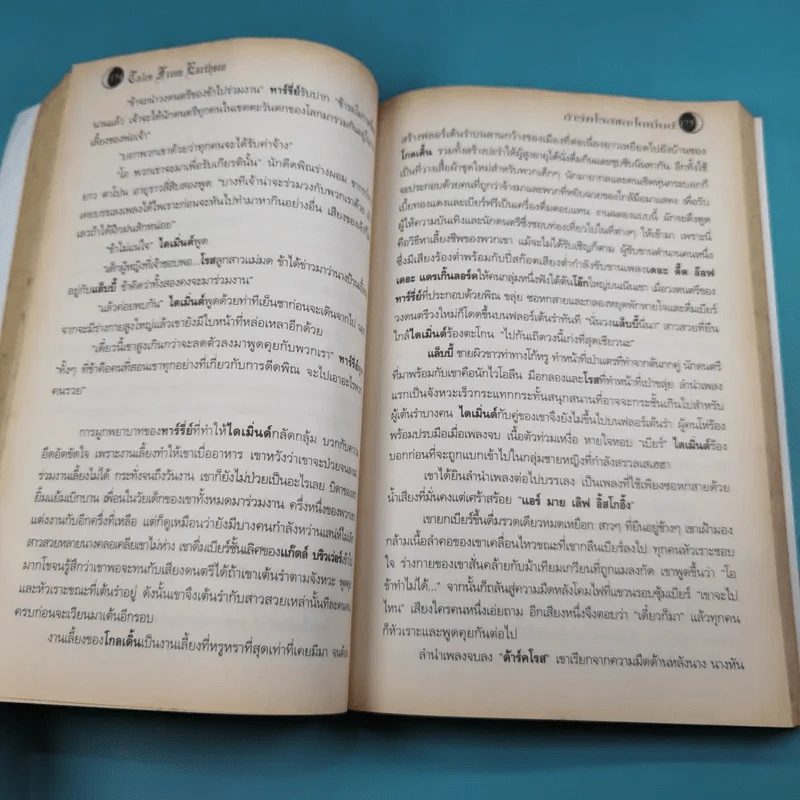 Tales From Earthsea
"ข้าจะนำวงดนตรีของข้าไปร่วมงาน" ทาร์รี่ย์รับปาก
นานแล้ว เจ้าจะได้นักดนตรีทุกคนในเขตตะวันตกของโลกมารวมกันอยู่
เลี้ยงของพ่อเจ้า"
"บอกพวกเขาด้วยว่าทุกคนจะได้รับค่าจ้าง"
"โอ พวกเขาจะมาเพื่อรับเกียรตินั้น" นักดีดพิณร่างผอม
ยาว ตาโปน อายุราวสี่สิบสองพูด "บางทีเจ้าน่าจะร่วมวงกับพวกเขาด้วย
เคยบรรเลงเพลงได้ไพเราะก่อนจะหันไปทำมาหากินอย่างอื่น เสียงของเจ้าก็
เลวถ้าได้ฝึกฝนสักหน่อย"
"ข้าไม่แน่ใจ" ไดเมิ่นด์พูด
"เด็กผู้หญิงที่เจ้าชอบพอ...โรสลูกสาวแม่มด ข้าได้ข่าวมาว่านาง
อยู่กับแล็บบี้ ข้าคิดว่าทั้งสองคงจะมาร่วมงาน"
"แล้วค่อยพบกัน" ไดเมิ่นด์พูดด้วยท่าทีเย็นชาก่อนจะเดินจากไป
จากจะมีร่างกายสูงใหญ่แล้วเขายังมีใบหน้าที่หล่อเหลาอีกด้วย
"เดี๋ยวนี้เขาสูงเกินกว่าจะลดตัวลงมาพูดคุยกับพวกเรา" ทาร์รี่ย์
"ทั้งๆ ที่ข้าคือคนที่สอนเขาทุกอย่างที่เกี่ยวกับการดีดพิณ จะไปเอาอะไร
คนรวย"
การผูกพยาบาทของทาร์รี่ย์ที่ทำให้ไดเมิ่นด์กลัดกลุ้ม บวกกับความ
อึดอัดขัดใจ เพราะงานเลี้ยงทำให้เขาเบื่ออาหาร เขาหวังว่าเขาจะป่วยจน
ร่วมงานเลี้ยงไม่ได้ กระทั่งจนถึงวันงาน เขาก็ยังไม่ป่วยเป็นอะไรเลย บิดาของ
ยิ้มแย้มเบิกบาน เพื่อนในวัยเด็กของเขาทั้งหมดมาร่วมงาน ครึ่งหนึ่งของ
แต่งงานกับอีกครึ่งที่เหลือ แต่ก็ดูเหมือนว่ายังมีบางคนกำลังหว่านเสน่ห์
สาวสวยหลายนางคลอเคลียเขาไม่ห่าง เขาดื่มเบียร์ชั้นเลิศของแก๊ดส์ บริวเวอร์
มากโขจนรู้สึกว่าเขาพอจะทนกับเสียงดนตรีได้ถ้าเขาเต้นรำตามจังหวะ
และหัวเราะขณะที่เต้นรำอยู่ ดังนั้นเขาจึงเต้นรำกับสาวสวยเหล่านั้นทีละคน
ครบก่อนจะเวียนมาเต้นอีกรอบ
งานเลี้ยงของโกลเดิ้นเป็นงานเลี้ยงที่หรูหราที่สุดเท่าที่เคยมีมา
175
สร้างฟลอร์เต้นรำบนลานกว้างของเมืองที่ต่อเนื่องยาวเหยียดไปยังบ้านของ
โกลเดิ้น รวมทั้งสร้างปะรำให้ผู้สูงอายุได้นั่งดื่มกินและซุบซิบนินทากัน อีกทั้งใช้
เป็นที่วางเสื้อผ้าชุดใหม่สำหรับพวกเด็กๆ นักมายากลและคนเชิดหุ่นกระบอกก็
จะประกอบด้วยคนที่ถูกว่าจ้างมาและพวกที่หยิบฉวยของใกล้มือมาแสดง เพื่อรับ
เบี้ยทองแดงและเบียร์ฟรีเป็นเครื่องดื่มตอบแทน งานฉลองแบบนี้ มักจะดึงดูด
ผู้ให้ความบันเทิงและนักดนตรีซึ่งชอบท่องเที่ยวไปในที่ต่างๆ ให้เข้ามา เพราะนี่
คือวิธีหาเลี้ยงชีพของพวกเขา แม้จะไม่ได้รับเชิญก็ตาม ผู้ขับขานตำนานคนหนึ่ง
ซึ่งมีเสียงร้องต่ำพร้อมกับปี่สก๊อตเสียงต่ำกำลังขับขานเพลงเดอะ ดี๊ด อ๊อฟ
เดอะ แดรเกิ้นลอร์ดให้คนกลุ่มหนึ่งฟังใต้ต้นโอ๊กใหญ่บนเนินเขา เมื่อวงดนตรีของ
ทาร์รี่ย์ที่ประกอบด้วยพิณ ขลุ่ย ซอหกสายและกลองหยุดพักหายใจและดื่มเบียร์
วงดนตรีวงใหม่ก็โดดขึ้นบนฟลอร์เต้นรำทันที "นั่นวงแล็บบี้นี่นา" สาวสวยที่ยืน
ใกล้ไดเมิ่นด์ร้องตะโกน "ไปกันเถิดวงนี้เก่งที่สุดเชียวนะ"
แล็บบี้ ชายผิวขาวท่าทางโก้หรู ทำหน้าที่เป่าแตรที่ทำจากต้นกกคู่ นักดนตรี
ที่มาพร้อมกับเขาคือนักไวโอลีน มือกลองและโรสที่ทำหน้าที่เป่าขลุ่ย ลำนำเพลง
แรกเป็นจังหวะเร็วกระแทกกระทั้นสนุกสนานที่อาจจะกระชั้นเกินไปสำหรับ
ผู้เต้นรำบางคน ไดเมิ่นด์กับคู่ของเขาจึงยังไม่ขึ้นไปบนฟลอร์เต้นรำ ผู้คนโห่ร้อง
พร้อมปรบมือเมื่อเพลงจบ เนื้อตัวท่วมเหงื่อ หายใจหอบ "เบียร์" ไดเมิ่นด์ร้อง
บอกก่อนที่จะถูกแบกเข้าไปในกลุ่มชายหญิงที่กำลังสรวลเสเฮฮา
เขาได้ยินลำนำเพลงต่อไปบรรเลง เป็นเพลงที่ใช้เพียงซอหกสายด้วย
น้ำเสียงที่มั่นคงแต่เศร้าสร้อย "แอร์ มาย เลิฟ อี๊สโกอิ้ง"
เขายกเบียร์ขึ้นดื่มรวดเดียวหมดเหยือก สาวๆ ที่ยืนอยู่ข้างๆ เขาเฝ้ามอง
กล้ามเนื้อลำคอของเขาเคลื่อนไหวขณะที่เขากลืนเบียร์ลงไป ทุกคนหัวเราะชอบ
ใจ ร่างกายของเขาสั่นคล้ายกับม้าเทียมเกวียนที่ถูกแมลงกัด เขาพูดขึ้นว่า "โอ
ข้าทำไม่ได้..." จากนั้นก็ถลันสู่ความมืดหลังโคมไฟที่แขวนรอบซุ้มเบียร์ "เขาจะไป
ไหน" เสียงใครคนหนึ่งเอ่ยถาม อีกเสียงหนึ่งจึงตอบว่า "เดี๋ยวก็มา" แล้วทุกคน
ก็หัวเราะและพูดคุยกันต่อไป
ลำนำเพลงจบลง "ด๊าร์คโรส" เขาเรียกจากความมืดด้านหลังนาง นางหัน